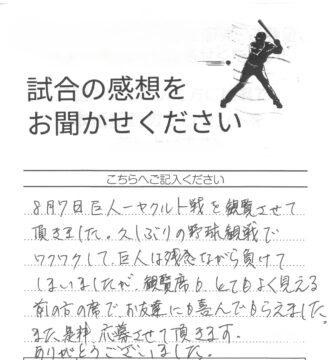 試合の感想を
お聞かせください
こちらへご記入ください
8月7日巨人ーヤクルト戦を観覧させて
頂きました。久しぶりの野球観戦で
ワクワクして、巨人は残念ながら負けて
しまいましたが、観覧席もとてもよく見える
前の方の席で、お友達にも喜んでもらえました。
また是非、応募させて頂きます。
ありがとうございました。